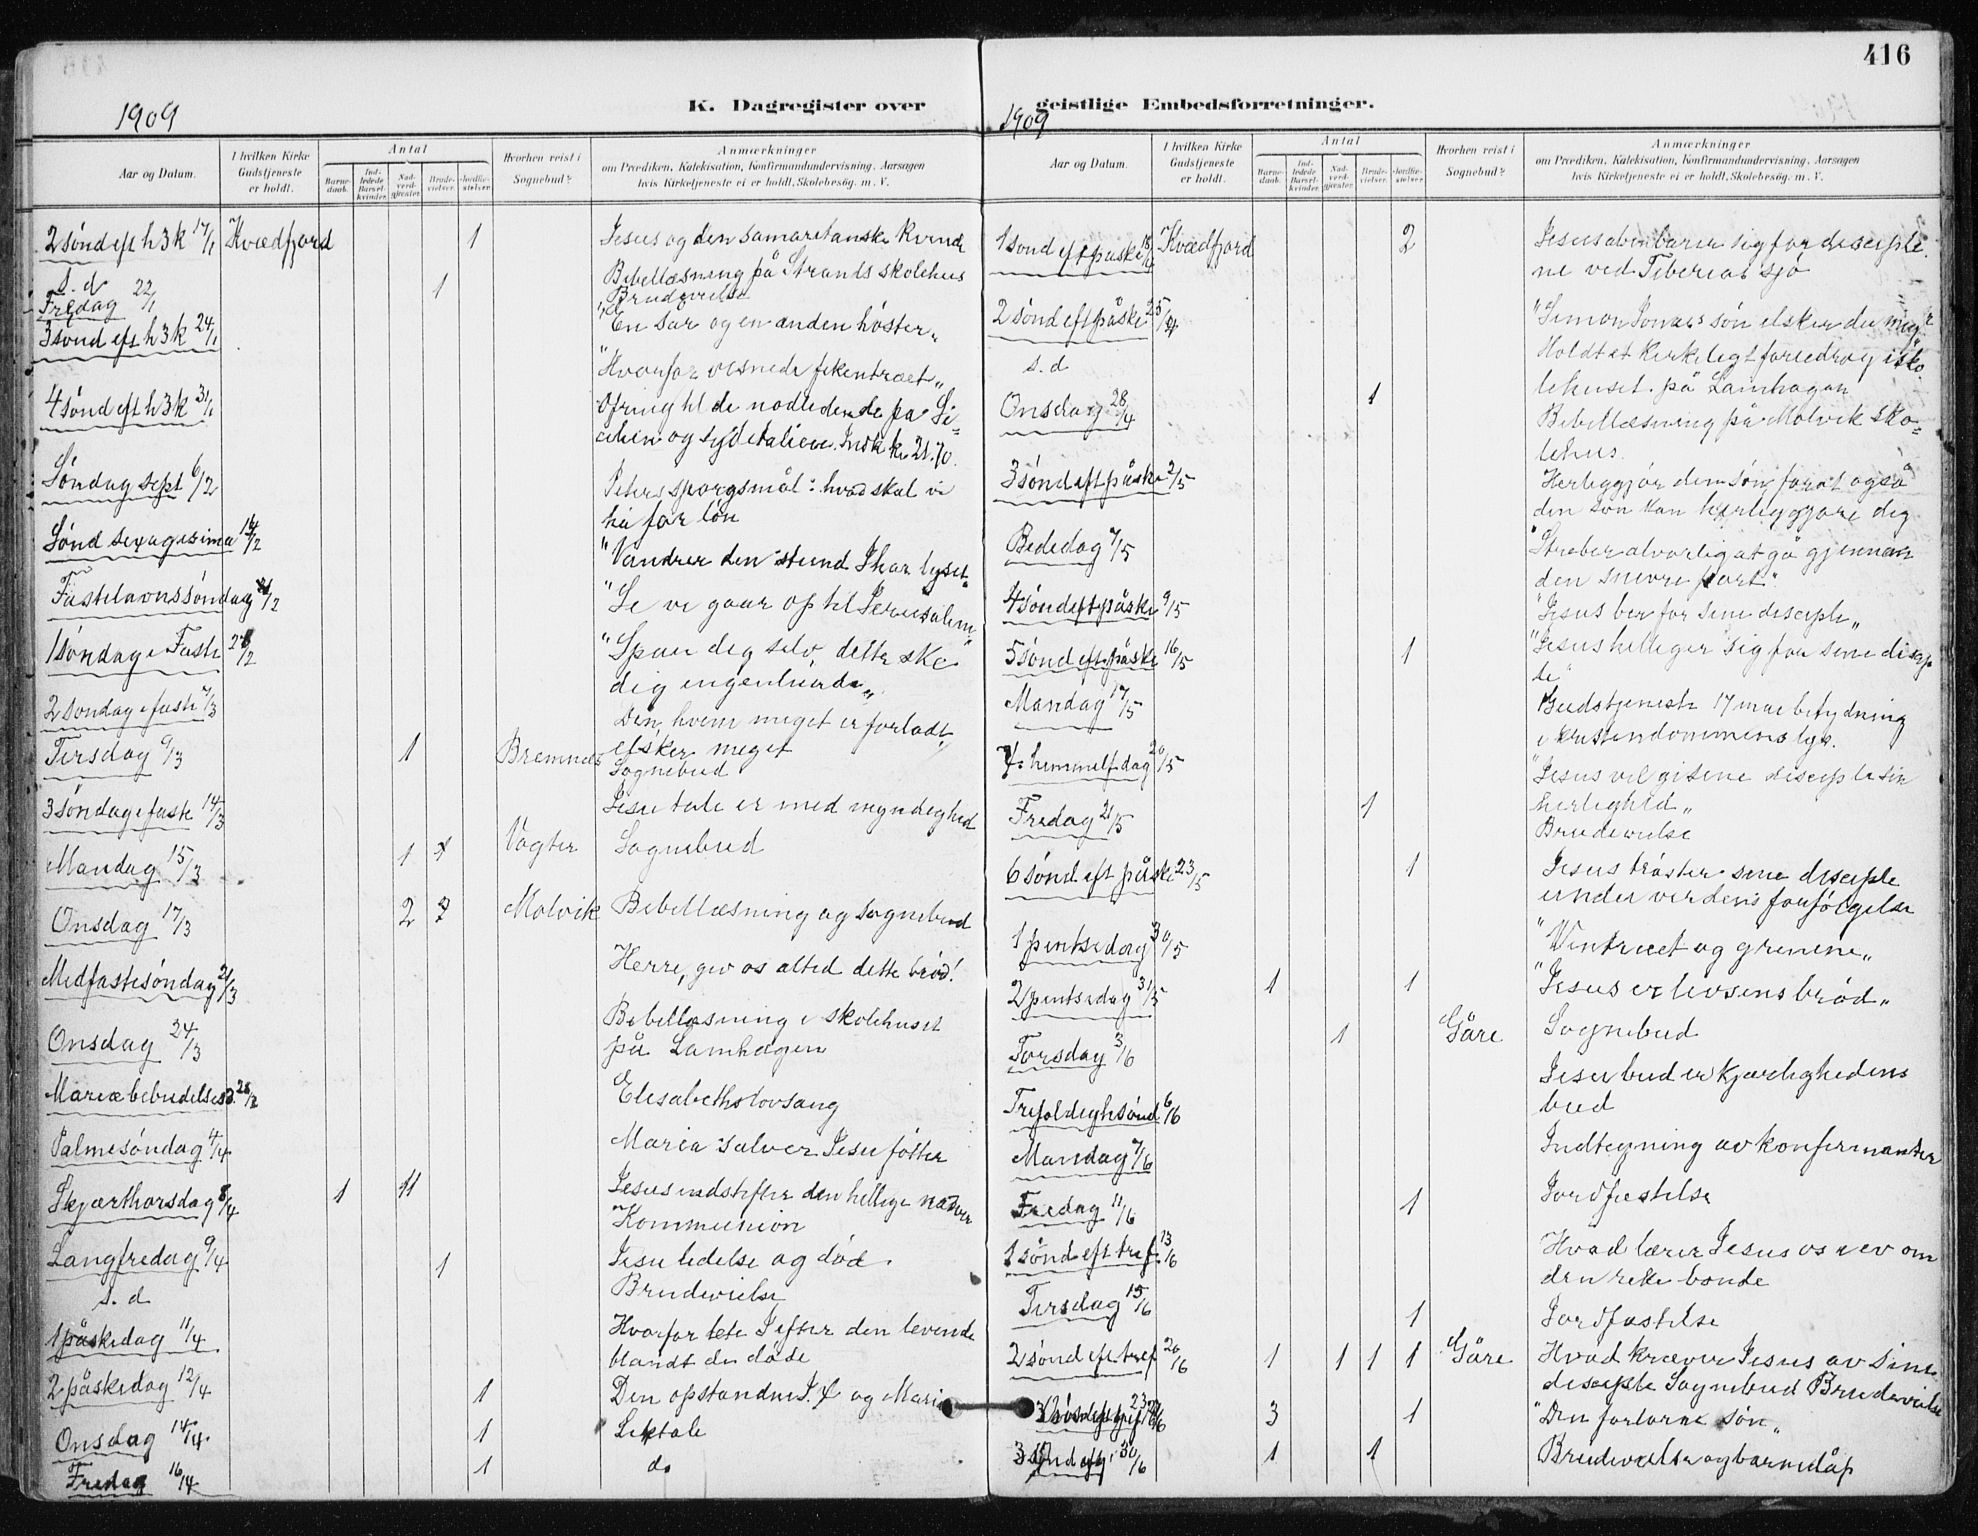 416
K. Dagregister over geistlige Embedsforretninger.
1909
1909
Aar og Datum.
I hvilken Kirke Gudstjeneste er holdt.
Antal
Barnedaab.
Indledede Barselkvinder.
Nadverdgjester.
Brudevielser.
Jordfæstelser.
Hvorhen reist i Sognebud?
Anmærkninger
om Prædiken, Katekisation, Konfirmandundervisning, Aarsagen
hvis Kirketjeneste ei er holdt, Skolebesøg. m. V.
2 sønd eft h 3 k 17/1 Kvædfjord 1 Jesus og den samaritanske kvinde
s. d Bibellæsning på Strands skolehus
Fredag 22/1 1 Brudevielse
3 sønd eft h 3 k 24/1 "En sår og en anden høster"
"Hvorfor visnede fikentræet"
4 sønd eft h 3 k 31/1 Ofring til de nødlidende på Si-
cilien og syditalien. Indk kr 21.70.
Søndag sept 6/2 Peters spørgsmål: hvad skal vi
ha for løn
Sønd sexagesima 14/2 "Vandrer den stund I har lyset"
Fastelavnssøndag 21/2 "Se vi gaar op til Jerusalem"
1 søndag i Faste 28/2 "Spar dig selv, dette ske
dig ingenlunde"
2 søndag i faste 7/3 Den, hvem meget er forladt,
elsker meget
Tirsdag 9/3 1 Bremnes Sognebud
3 søndag i faste 14/3 Jesu tale er med myndighed
Mandag 15/3 1 Vogter Sognebud
Onsdag 17/3 2 Molvik Bibellæsning og sognebud
Midfastesøndag 21/3 Herre, giv os altid dette brød!
Onsdag 24/3 Bibellæsning i skolehuset
på Lamhagen
Mariæ bebudelsesd. 28/3 Elisabeths lovsang
Palmesøndag 4/4 Maria salver Jesu føtter
Skjærthorsdag 8/4 1 11 Jesus indstifter den hellige nadver
Kommunion
Langfredag 9/4 Jesu lidelse og død.
s. d 1 Brudevielse
1 påskedag 11/4 Hvorfor lete I efter den levende
blandt de døde
2 påskedag 12/4 1 Den opstandne J. X og Maria
Onsdag 14/4 1 Liktale
Fredag 16/4 1 do
Aar og Datum.
I hvilken Kirke Gudstjeneste er holdt.
Antal
Barnedaab.
Indledede Barselkvinder.
Nadverdgjester.
Brudevielser.
Jordfæstelser.
Hvorhen reist i Sognebud?
Anmærkninger
om Prædiken, Katekisation, Konfirmandundervisning, Aarsagen
hvis Kirketjeneste ei er holdt, Skolebesøg. m. V.
1 sønd eft påske 18/4 Kvædfjord 2 Jesus åbenbarer sig for disciple
ne ved Tiberias sjø
2 sønd eft påske 25/4 "Simon Jonas søn elsker du mig"
s. d Holdt et kirkeligt foredrag i sko
lehuset på Lamhagen
Onsdag 28/4 1 Bibellæsning på Molvik sko-
lehus
3 sønd eft påske 2/5 Herliggjør din søn forat også
din søn kan herliggjøre dig
Bededag 7/5 "Stræber alvorlig at gå gjennem
den snevre port"
4 sønd eft påske 9/5 "Jesus ber for sine disciple"
5 sønd eft påske 16/5 1 "Jesus helliger sig for sine discip
le"
Mandag 17/5 Gudstjeneste 17 mai betydning
i kristendommens lys.
Kr himmelf dag 20/5 "Jesus vil gi sine disciple sin
herlighed"
Fredag 21/5 1 Brudevielse
6 sønd eft påske 23/5 1 Jesus trøster sine disciple
under verdens forfølgelse
1 pintsedag 30/5 "Vintræet og grenene"
2 pintsedag 31/5 1 1 "Jesus er livsens brød"
Torsdag 3/6 1 Gåre Sognebud
Trefoldighsønd 6/6 Jesu bud er kjærlighedens
bud
Mandag 7/6 Indtegning av konfirmanter
Fredag 11/6 1 Jordfæstelse
1 sønd eft tref. 13/6 Hvad lærer Jesus os ... om
den rike bonde
Tirsdag 15/6 1 Jordfæstelse
2 sønd eft tref 20/6 1 1 1 1 Gåre Hvad kræver Jesus av sine
disciple Sognebud Brudevielse
3 1 "Den fortorne søn"
30/6 1 1 Brudevielse og barnedåp